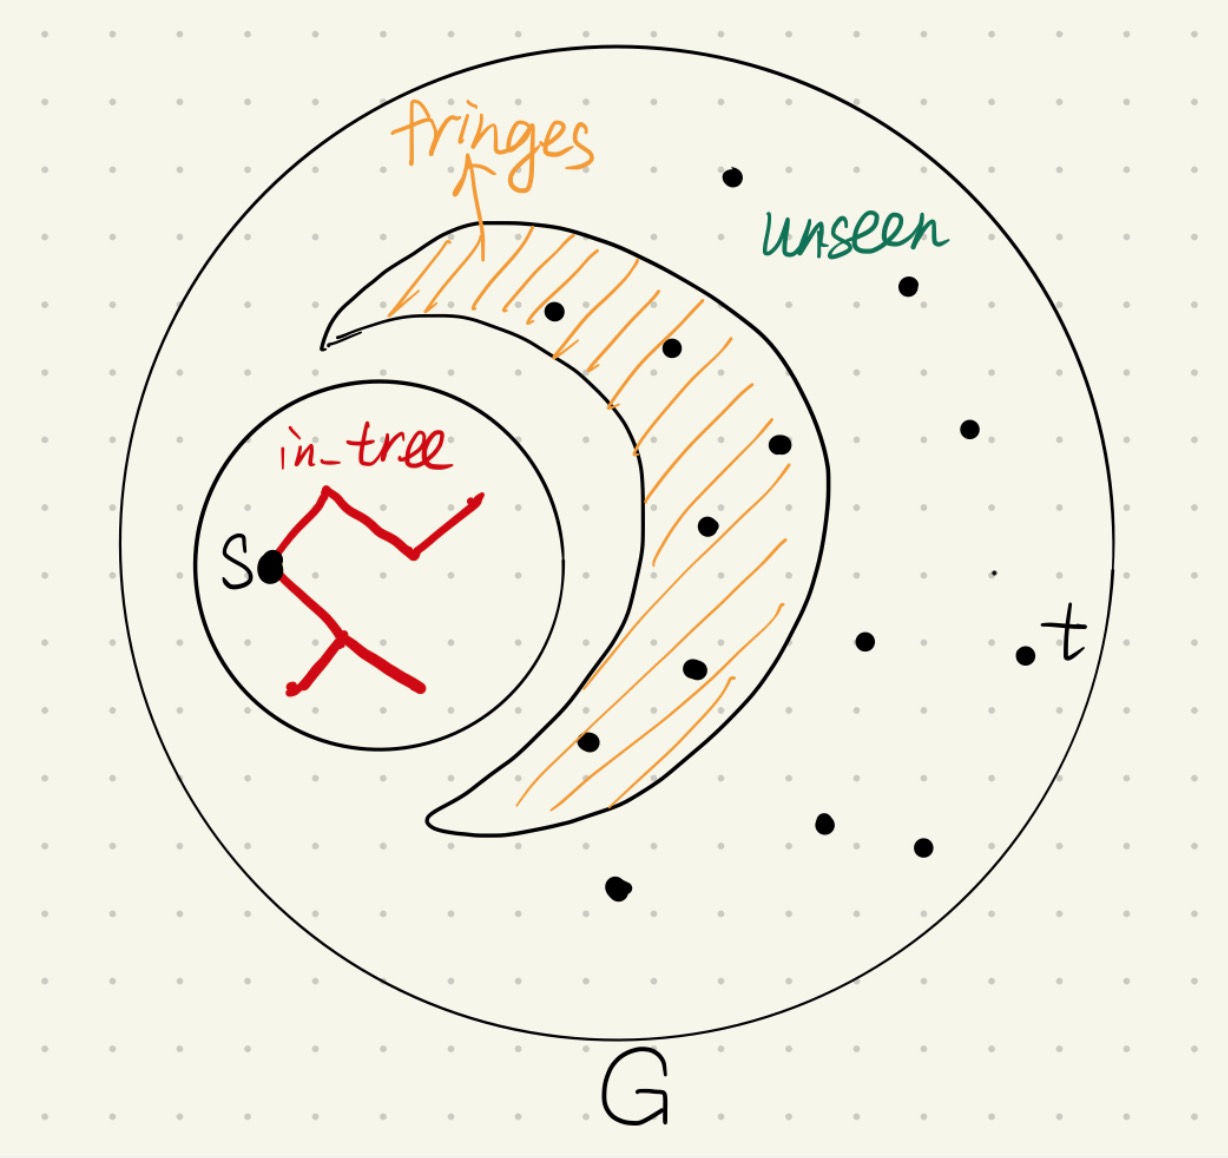 fringes
unseen
in_tree
S
t
G